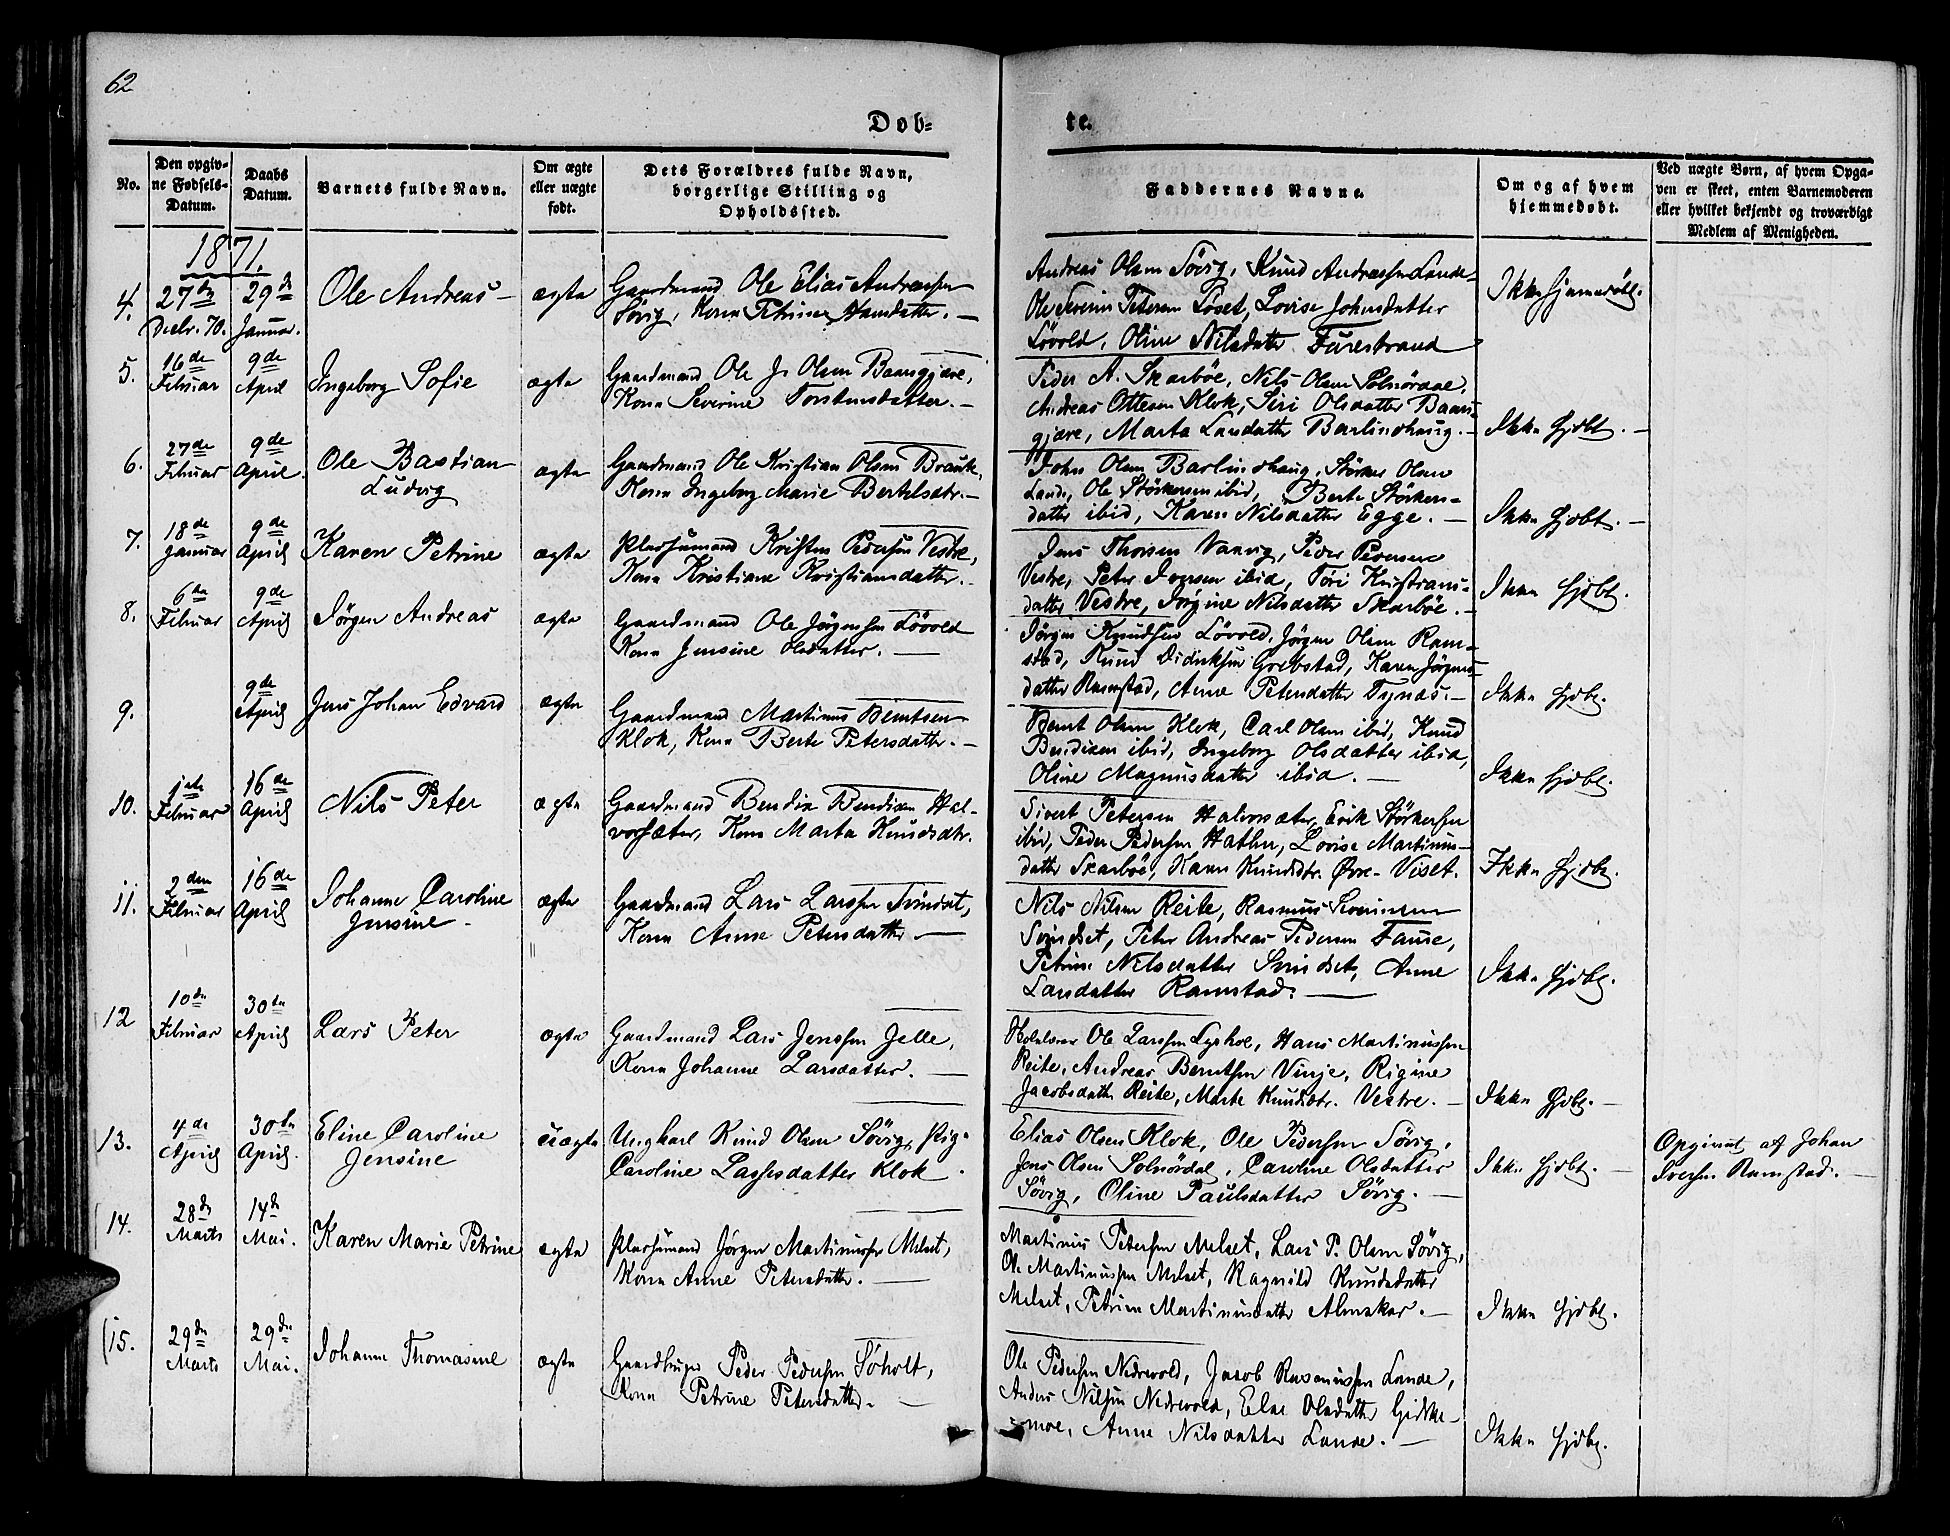 62
Døb-
te.
No.
Den opgiv-
ne Fødsels-
Datum.
Daabs
Datum.
Barnets fulde Navn.
Om ægte
eller uægte
født.
Dets Forældres fulde Navn,
borgerlige Stilling og
Opholdssted.
Faddernes Navne.
Om og af hvem
hjemmedøbt.
Ved uægte Børn, af hvem Opga-
ven er skeet, enten Barnemoderen
eller hvilket bekjendt og troværdigt
Medlem af Menigheden.
1871.
4.
27de
Decbr. 70.
29de
Januar.
Ole Andreas
ægte
Gaardmand Ole Elias Andreassen
Søvig, Kona Petrine Hansdatter.
Andreas Olsen Søvig, Knud Andreassen Lande
Ole Severin Petersen Løset, Lovise Johnsdatter
Løvold, Oline Nilsdatter Furestrand
Ikke hjemmedøbt.
5.
16de
Februar
9de
April
Ingeborg Sofie
ægte
Gaardmand Ole J. Olsen Baansgjære,
Kona Severine Torstensdatter.
Peder A. Skarbøe, Nils Olsen Solnørdal,
Andreas Ottesen Klok, Siri Olsdatter Baans-
gjære, Marta Larsdatter Barlindhaug.
Ikke hjdbt.
6.
27de
Februar
9de
April.
Ole Bastian
Ludvig
ægte
Gaardmand Ole Kristian Olsen Brauk,
Kona Ingeborg Marie Bertelsdtr.
John Olsen Barlindhaug, Størker Olsen
Lande, Ole Størkersen ibid, Berte Størkers-
datter ibid, Karen Nilsdatter Egge.
Ikke hjdbt.
7.
18de
Januar
9de
April
Karen Petrine
ægte
Pladsmand Kristen Pedersen Vestre,
Kona Kristiane Kristiansdatter.
Jens Thorsen Vanvig, Peder Pedersen
Vestre, Peter Iversen ibid, Tøri Kristians-
datter Vestre, Jørgine Nilsdatter Skarbøe.
Ikke hjdbt.
8.
6te
Februar
9de
April
Jørgen Andreas
ægte
Gaardmand Ole Jørgensen Løvold
Kona Jensine Olsdatter.
Jørgen Knudsen Løvold, Jørgen Olsen Ram-
stad, Knud Didriksen Grebstad, Karen Jørgens-
datter Ramstad, Anne Petersdatter Tynæs.
Ikke hjdbt.
9.
9de
April
Jens Johan Edvard
ægte
Gaardmand Martinus Berntsen
Klok, Kona Berte Petersdatter.
Bernt Olsen Klok, Carl Olsen ibid, Knud
Bendixen ibid, Ingeborg Olsdatter ibid,
Oline Magnusdatter ibid.
Ikke hjdbt.
10.
1ste
Februar
16de
April
Nils Peter
ægte
Gaardmand Bendix Bendixen Hal-
vorsæter, Kona Marta Knudsdtr.
Sivert Petersen Halvorsæter, Erik Størkersen
ibid, Peder Pedersen Hatlen, Lovise Martinus-
datter Skarbøe, Karen Knudsdtr. Øvre-Viset.
Ikke hjdbt.
11.
2den
Februar
16de
April
Johanne Caroline
Jensine
ægte
Gaardmand Lars Larssen Svindset,
Kona Anne Petersdatter
Nils Nilsen Reite, Rasmus Severinsen
Svindset, Peter Andreas Pedersen Fause,
Petrine Nilsdatter Svindset, Anne
Larsdatter Ramstad.
Ikke hjdbt.
12
10de
Februar
30te
April
Lars Peter
ægte
Gaardmand Lars Jenssen Jelle,
Kona Johanne Larsdatter.
Ole Larssen Lyshol, Hans Martinussen
Reite, Andreas Berntsen Vinje, Rigine
Jacobsdatter Reite, Marte Knudsdtr. Vestre.
Ikke hjdbt.
13.
4de
April
30te
April.
Eline Caroline
Jensine
uægte
Ungkarl Knud Olsen Søvig, Pige
Caroline Lassesdatter Klok
Elias Olsen Klok, Ole Pedersen Søvig,
Jens Olsen Solnørdal, Caroline Olsdatter
Søvig, Oline Paulsdatter Søvig.
Ikke hjdbt.
Opgivet af Johan
Iversen Ramstad.
14.
28de
Marts
14de
Mai.
Karen Marie Petrine
ægte
Pladsmand Jørgen Martinussen Melset,
Kona Anne Petersdatter.
Martinus Petersen Melset, Lars P. Olsen Søvig,
Ole Martinussen Melset, Ragnild Knudsdatter
Melset, Petrine Martinusdatter Almskar.
Ikke hjdbt.
15.
29de
Marts
29de
Mai.
Johanne Thomasine
ægte
Gaardbruger Peder Pedersen Søholt,
Kona Petrine Petersdatter.
Ole Pedersen Nedrevold, Jacob Rasmussen Lande,
Anders Nilsen Nedrevold, Else Olsdatter Gidske-
moe, Anne Nilsdatter Lande.
Ikke hjdbt.